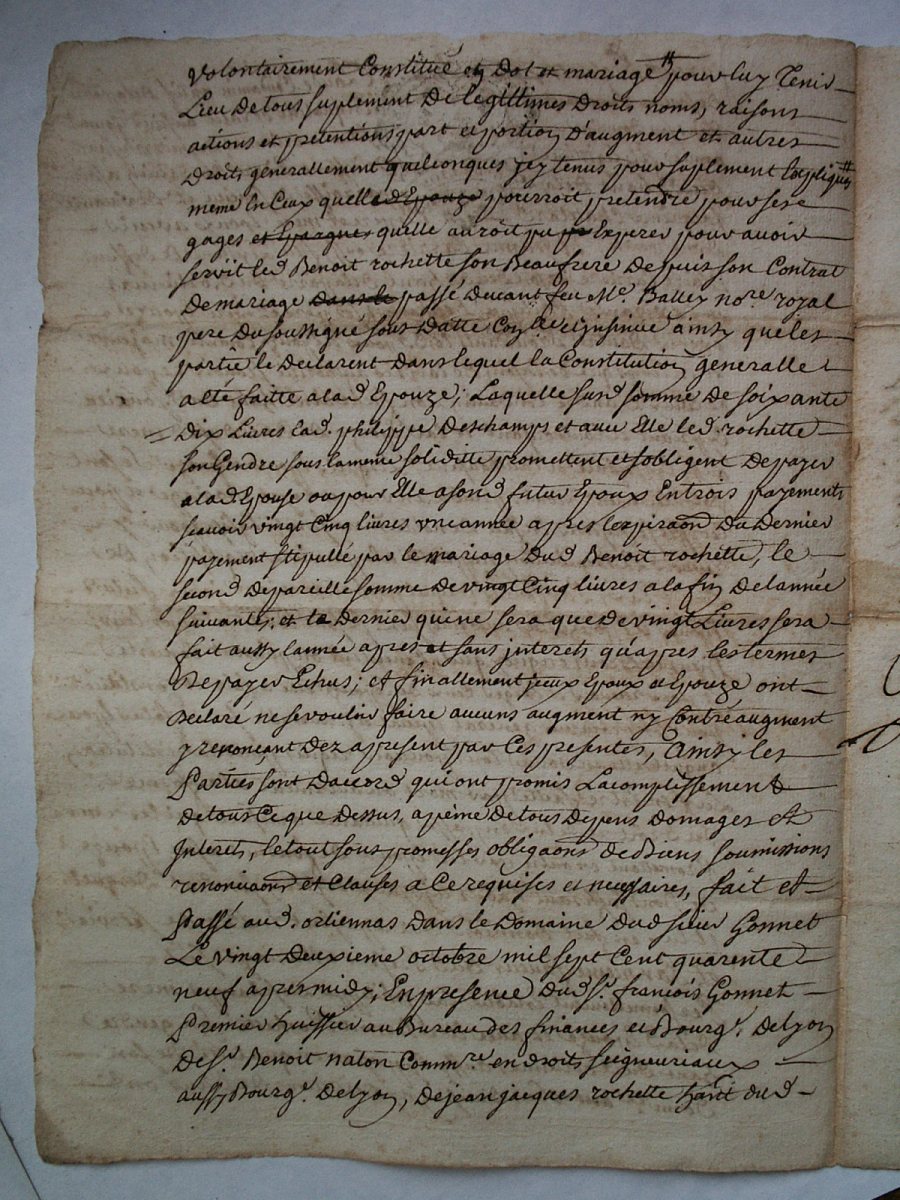 volontairement Constitué en dot et mariage pour luy Tenir
Lieu De tous suplement De legittimes Droits noms, raisons
actions et pretentions part et portion D'augment et autres
Droits generallement quelconques jcy tenus pour suplement Expliques
meme En Ceux quelle pourroit pretendre pour ses
gages quelle auroit pu Experer pour avoir
servit led Benoit rochette son Beaufrere Depuis son Contrat
De mariage passé devant feu Me. Balley nore. royal
pere Du soussigné sous Datte et jnsinue ainsy que les
partie le Declarent Dans lequel la Constitution generalle
a été faitte a lad Epouze; Laquelle susd somme De soixante
Dix Livres lad. philippe Deschamps et avec Elle led. rochette
son Gendre sous la meme soliditte promettent et s'obligent De payer
a lad Epouse ou pour Elle a sond futur Epoux En trois payements
scavoir vingt Cinq livres vne année apres lexpiraon Du Dernier
payement stipullé par le mariage Dud Benoit rochette, le
second De pareille somme De vingt Cinq livres a la fin De lannée
suivante; et le Dernier qui ne sera que De vingt Livres sera
fait aussy lannée apres et sans jnterets qu'apres les termes
De payer Echus; et finallement jceux Epoux et Epouze ont
Declaré ne se vouloir faire aucuns augment ny Contréaugment
y renonçant Dez a present par Ces presentes, Ainsy les
Parties sont Daccord qui ont promis Lacomplissement
de tous Ce que Dessus, a peine De tous Depens Domages Et
Interets, le tout sous promesses obligaons de Biens soumissions
renonciaons et Clauses a Ce requises et necessaires, fait et
Passé aud. ortiennas Dans le Domaine Dud sieur Gonnet
Le vingt Deuxieme octobre mil sept Cent quarente
neuf apres midy; En presence Dud sr. françois Gonnet
Premier huissier au Bureau des finances et Bourgs. De lyon
De sr. Benoit naton Commre. en droits seigneuriaux
aussy Bourgs. De lyon, De jean jacques rochette hant dud